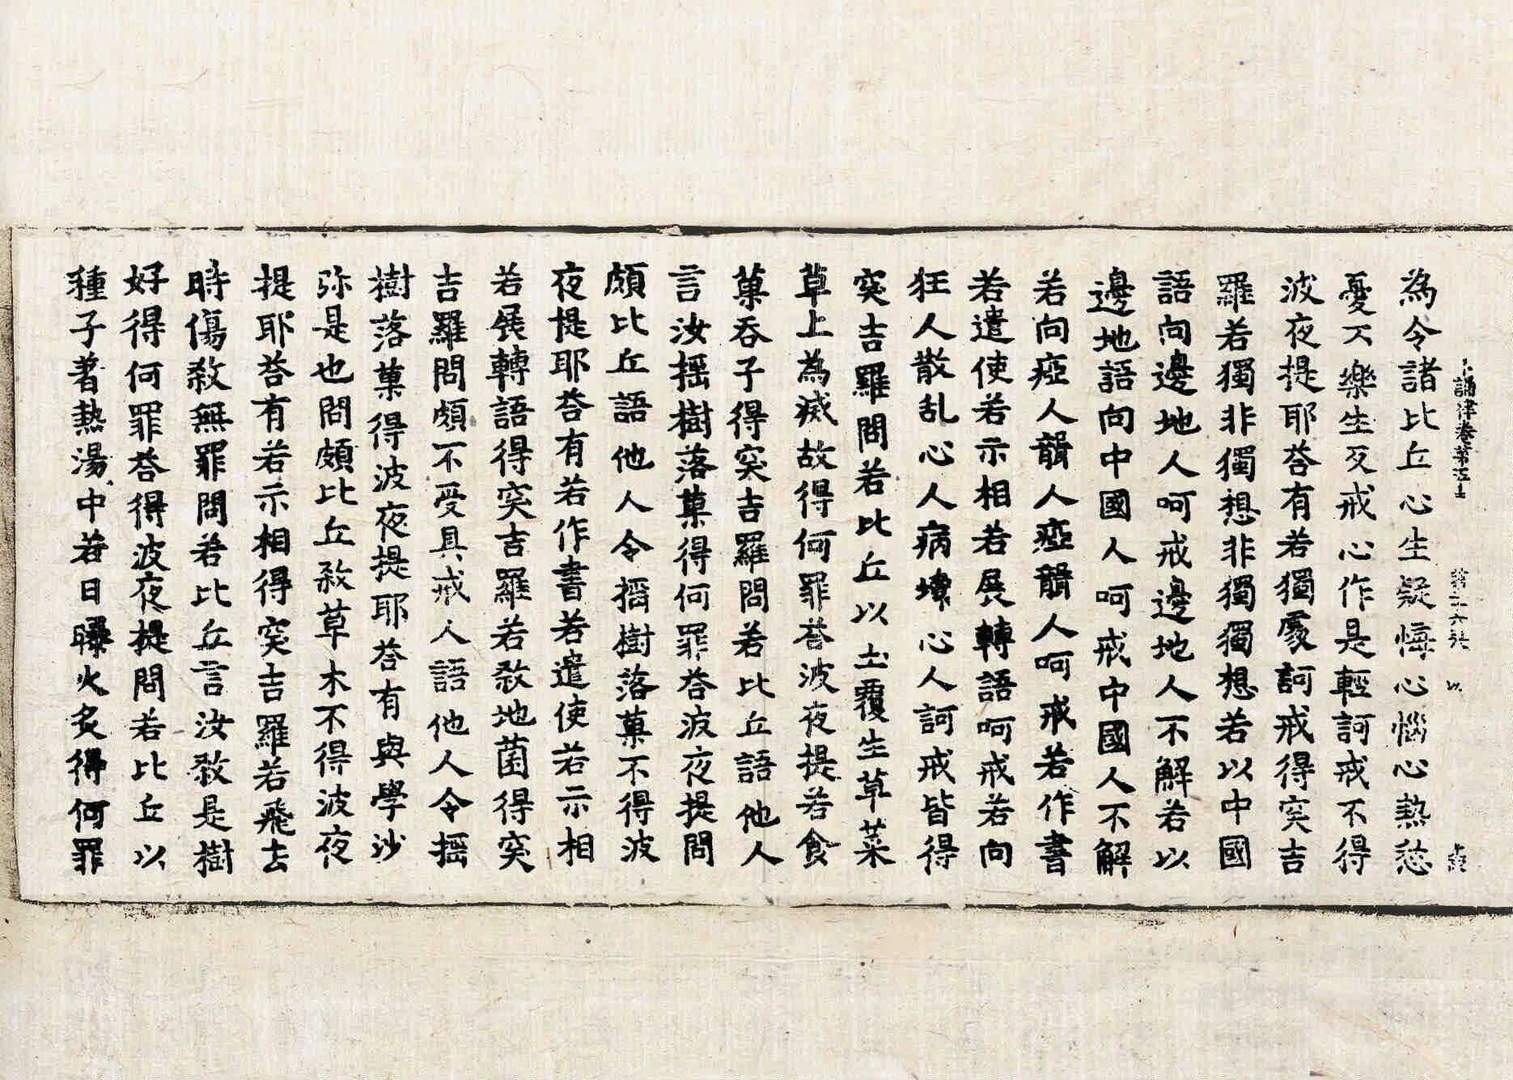 十誦律卷第五十
為令諸比丘心生疑悔心惱心熱愁
憂不樂生反戒心作是輕訶戒不得
波夜提耶荅有若獨處訶戒得突吉
羅若獨非獨想非獨獨想若以中國
語向邊地人呵戒邊地人不解若以
邊地語向中國人呵戒中國人不解
若向瘂人聾人瘂聾人呵戒若作書
若遣使若示相若展轉語呵戒若向
狂人散乱心人病壞心人訶戒皆得
突吉羅問若比丘以土覆生草菜
草上為滅故得何罪荅波夜提若食
菓吞子得突吉羅問若比丘語他人
言汝揺樹落菓得何罪荅波夜提問
頗比丘語他人令揺樹落菓不得波
夜提耶荅有若作書若遣使若示相
若展轉語得突吉羅若敎地菌得突
吉羅問頗不受具戒人語他人令揺
樹落菓得波夜提耶荅有與學沙
弥是也問頗比丘殺草木不得波夜
提耶荅有若示相得突吉羅若飛去
時傷殺無罪問若比丘言汝敎是樹
好得何罪荅得波夜提問若比丘以
種子著熱湯中若日曝火炙得何罪